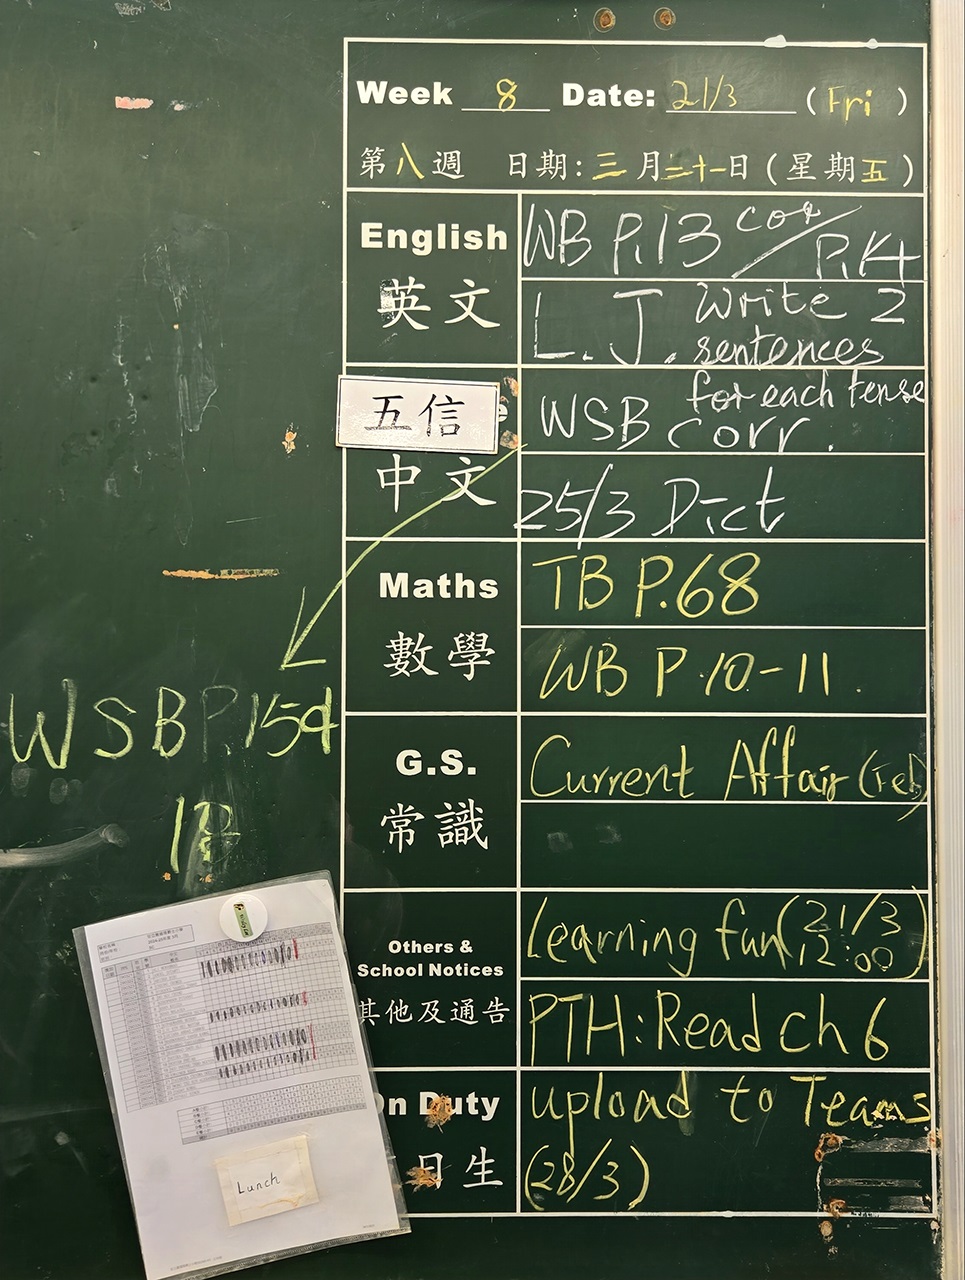 Week 8 Date: 21/3 (Fri)
第八週 日期:三月二十一日(星期五)
English
英文
WB P.13 cor / P.K4
L.J. Write 2
sentences
for each tense
五信
中文
WSB corr.
25/3 Dict
WSB P.154
Maths
數學
TB P.68
WB P.10-11.
G.S.
常識
Current Affair (Feb)
Others &
School Notices
其他及通告
Learning fun (21/3
12:00)
PTH: Read ch 6
On Duty
日生
upload to Teams
(28/3)
Lunch